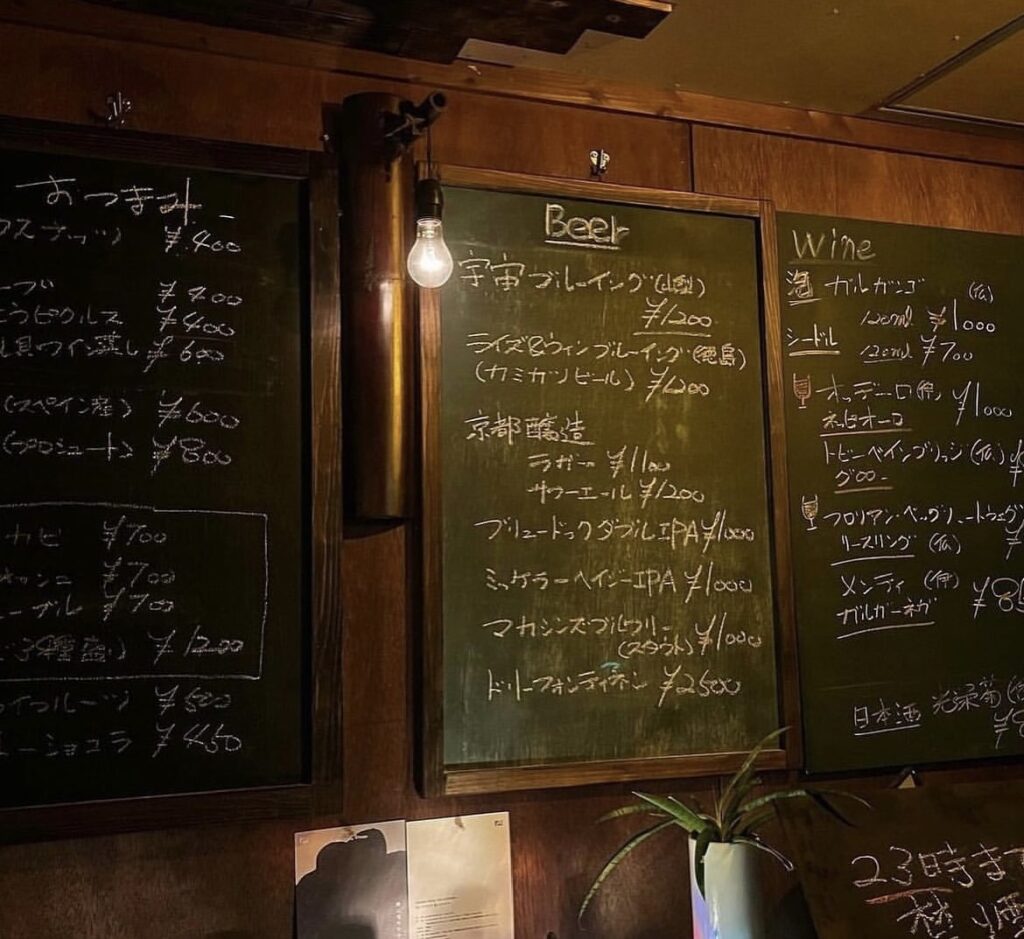 おつまみ
¥400
¥400
ピクルス ¥400
ワイン蒸し ¥600
(スペイン産) ¥600
(プロシュート) ¥800
カビ ¥700
¥700
¥700
3種盛り) ¥1200
フルーツ ¥500
ショコラ ¥450
Beer
宇宙ブルーイング(山梨)
¥1200
ライズ&ウィンブルーイング(徳島)
(カミカツビール) ¥1200
京都醸造
ラガー ¥1100
サワーエール ¥1200
ブリュードックダブルIPA ¥1000
ミッケラーヘイジーIPA ¥1000
マカシンズブルフリー
(スタウト) ¥1000
ドリーフォンティネン ¥2500
Wine
泡 ガルガンゴ (仏)
120ml ¥1000
シードル
120ml ¥700
オッデーロ(伊) ¥1000
ネッビオーロ
トビーベインブリッジ(仏)
グロロー
フロリアン・ベック
リースリング (仏)
メンティ (伊)
ガルガーネガ
日本酒 光栄菊
23時まで